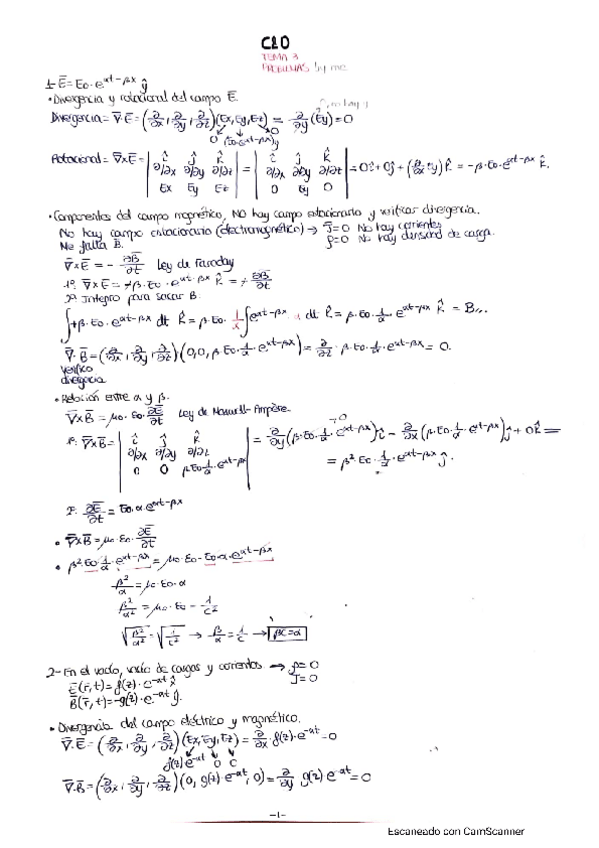 C20
TEMA 3
PROBLEMAS by me
1- Ē = E₀·e^(αt-βx) ŷ
• Divergencia y rotacional del campo Ē.
Divergencia = ∇̄·Ē = (∂/∂x, ∂/∂y, ∂/∂z)(Ex, Ey, Ez) = ∂/∂y (Ey) = 0
0 (E₀·e^(αt-βx))ŷ 0
Rotacional = ∇̄×Ē = | î ĵ k̂ ; ∂/∂x ∂/∂y ∂/∂z ; Ex Ey Ez | = | î ĵ k̂ ; ∂/∂x ∂/∂y ∂/∂z ; 0 Ey 0 | = 0î + 0ĵ + (∂/∂x Ey) k̂ = -β·E₀·e^(αt-βx) k̂.
• Componentes del campo magnético, NO hay campo estacionario y verificar divergencia.
No hay campo estacionario (electromagnético) → J̄ = 0 No hay corrientes
Me falta B. ρ = 0 No hay densidad de carga.
∇̄×Ē = - ∂B̄/∂t Ley de Faraday
1º: ∇̄×Ē = -β·E₀·e^(αt-βx) k̂ = - ∂B̄/∂t
2º Integro para sacar B:
∫+β·E₀·e^(αt-βx) dt k̂ = β·E₀· 1/α ∫e^(αt-βx) · α dt k̂ = β·E₀· 1/α · e^(αt-βx) k̂ = B...
∇̄·B̄ = (∂/∂x, ∂/∂y, ∂/∂z)(0, 0, β·E₀· 1/α · e^(αt-βx)) = ∂/∂z · β·E₀· 1/α · e^(αt-βx) = 0.
verifico
divergencia
• Relación entre α y β.
∇̄×B̄ = μ₀·ε₀· ∂Ē/∂t Ley de Maxwell-Ampère.
1º: ∇̄×B̄ = | î ĵ k̂ ; ∂/∂x ∂/∂y ∂/∂z ; 0 0 β·E₀· 1/α · e^(αt-βx) | = ∂/∂y (β·E₀· 1/α · e^(αt-βx)) î - ∂/∂x (β·E₀· 1/α · e^(αt-βx)) ĵ + 0k̂ =
= β²·E₀· 1/α · e^(αt-βx) ĵ.
2º: ∂Ē/∂t = E₀·α·e^(αt-βx)
• ∇̄×B̄ = μ₀·ε₀· ∂Ē/∂t
• β²·E₀· 1/α · e^(αt-βx) = μ₀·ε₀·E₀·α·e^(αt-βx)
β²/α = μ₀·ε₀·α
β²/α² = μ₀·ε₀ = 1/c²
√(β²/α²) = √(1/c²) → β/α = 1/c → βc = α
2- En el vacío, vacío de cargas y corrientes → ρ = 0
J̄ = 0
Ē(r̄,t) = f(z)·e^(-αt) x̂
B̄(r̄,t) = g(z)·e^(-αt) ŷ.
• Divergencia del campo eléctrico y magnético.
∇̄·Ē = (∂/∂x, ∂/∂y, ∂/∂z)(Ex, Ey, Ez) = ∂/∂x · f(z)·e^(-αt) = 0
f(z) e^(-αt) 0 0
∇̄·B̄ = (∂/∂x, ∂/∂y, ∂/∂z)(0, g(z)·e^(-αt), 0) = ∂/∂y g(z) e^(-αt) = 0
-1-
Escaneado con CamScanner